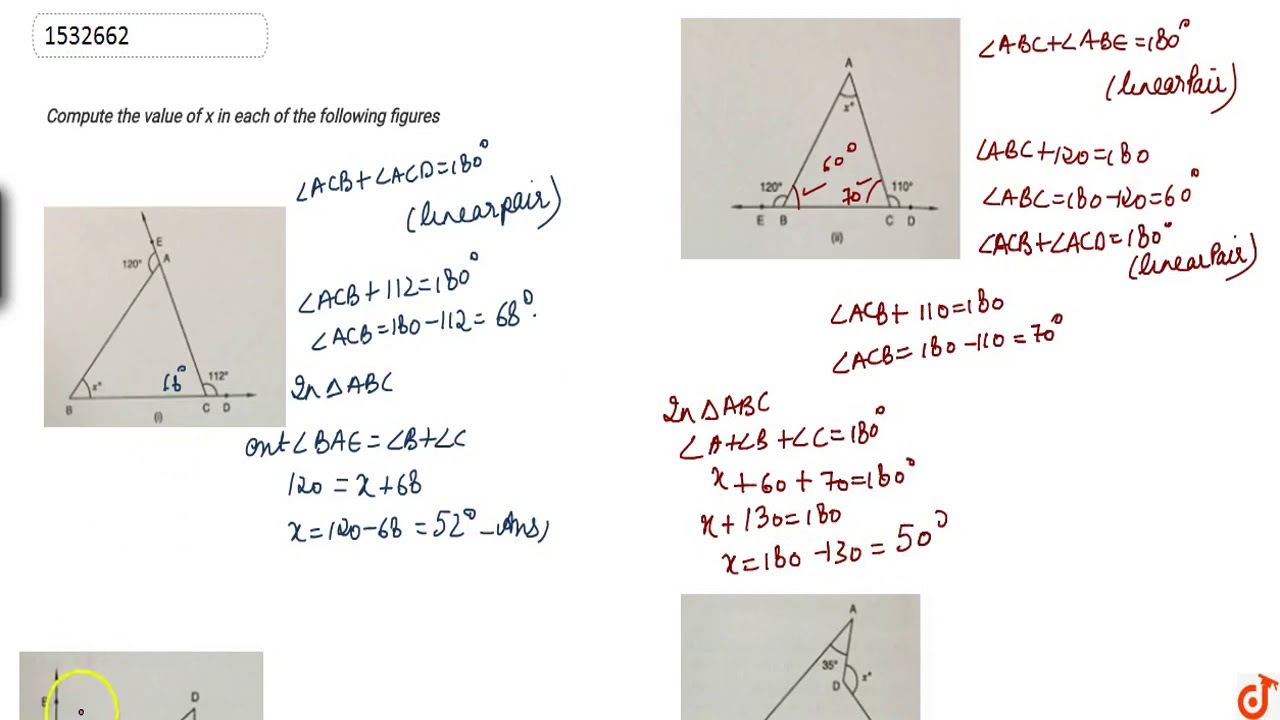 1532662
Compute the value of x in each of the following figures
∠ACB+∠ACD=180°
(linear pair)
E
A
120°
x°
68°
112°
B
C D
(i)
∠ACB+112=180°
∠ACB=180-112=68°.
In △ABC
ext∠BAE=∠B+∠C
120=x+68
x=120-68=52° -Ans,
A
x°
60°
120°
70
110°
E B
C D
(ii)
∠ABC+∠ABE=180°
(linear Pair)
∠ABC+120=180
∠ABC=180-120=60°
∠ACB+∠ACD=180°
(linear Pair)
∠ACB+110=180
∠ACB=180-110=70°
In △ABC
∠A+∠B+∠C=180°
x+60+70=180°
x+130=180
x=180-130=50°
D
A
35°
D
x°